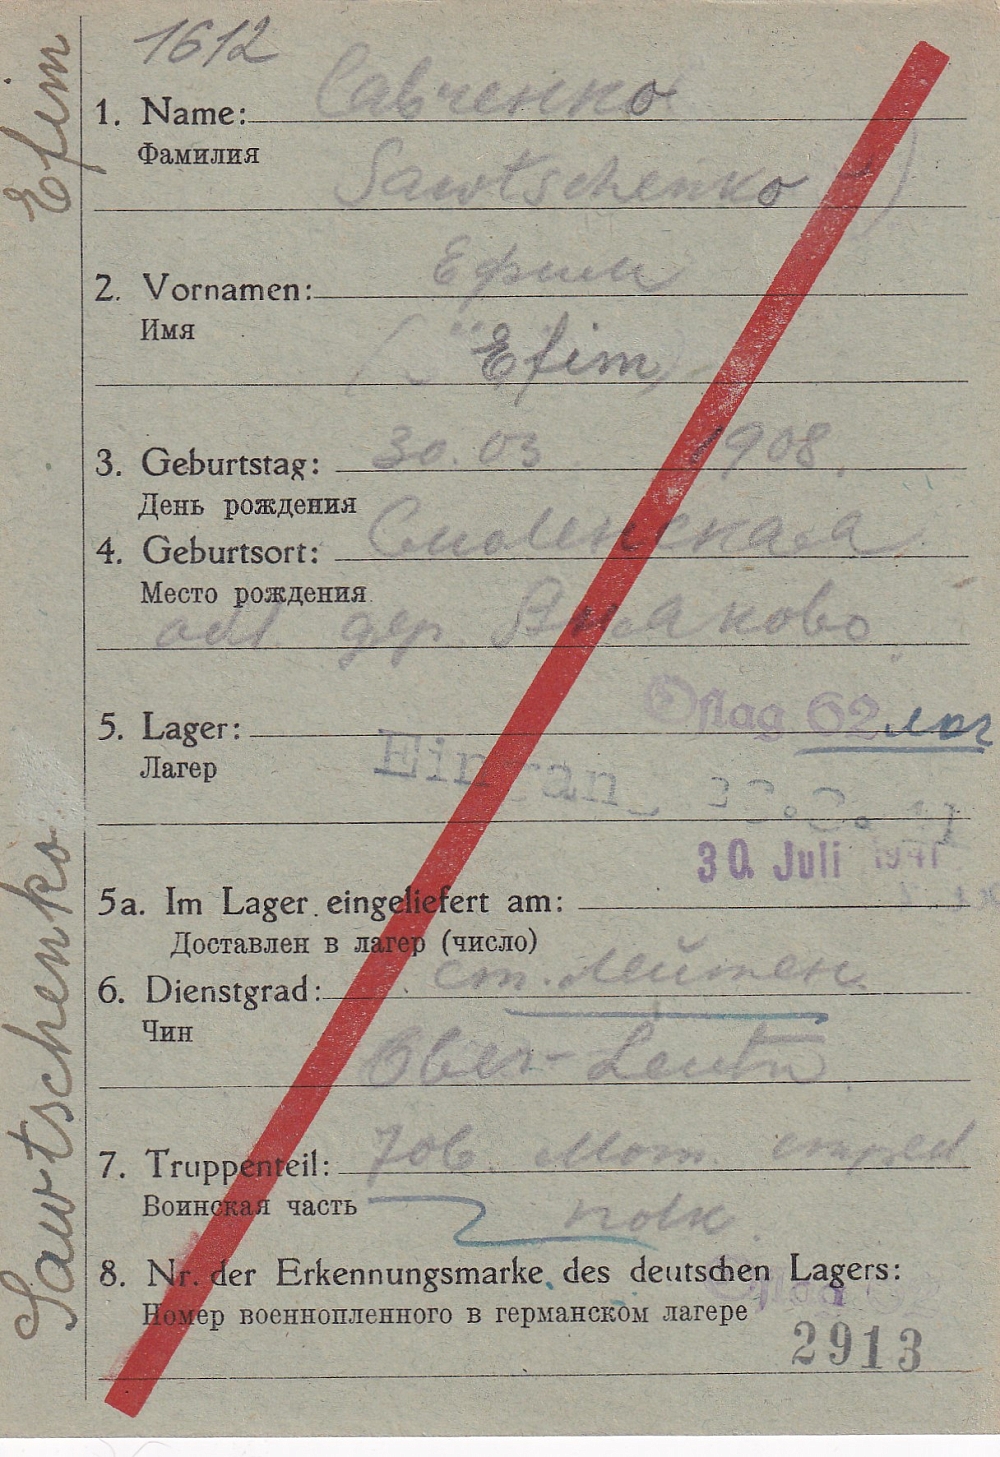 1612
Efim
Sawtschenko
1. Name: Савченко
Фамилия
Sawtschenko
2. Vornamen: Ефим
Имя
Efim
3. Geburtstag: 30. 03 1908.
День рождения
4. Geburtsort: Смоленская
Место рождения
обл дер.
Oflag 62
5. Lager:
Лагер
30. Juli 1941
5a. Im Lager eingeliefert am:
Доставлен в лагер (число)
6. Dienstgrad: ст. лейтен.
Чин
Ober-Leutn
7. Truppenteil: Мот. стрел
Воинская часть
полк.
8. Nr. der Erkennungsmarke des deutschen Lagers:
Oflag
Номер военнопленного в германском лагере
2913